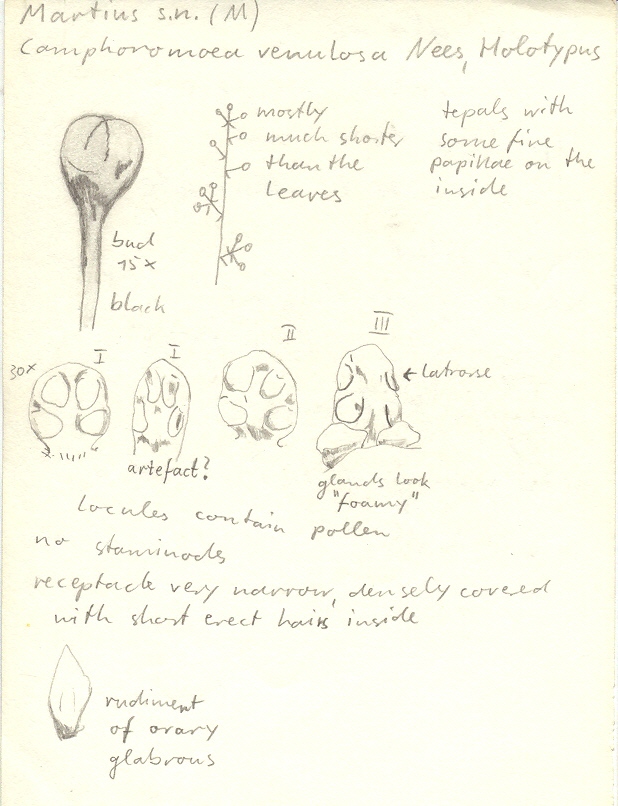 Martius s.n. (M)
Camphoromoea venulosa Nees, Holotypus
mostly
much shorter
than the
leaves
tepals with
some fine
papillae on the
inside
bud
15x
black
30x
I
I
II
III
← latrorse
artefact?
glands look
"foamy"
locules contain pollen
no staminods
receptacle very narrow, densely covered
with short erect hairs inside
rudiment
of ovary
glabrous